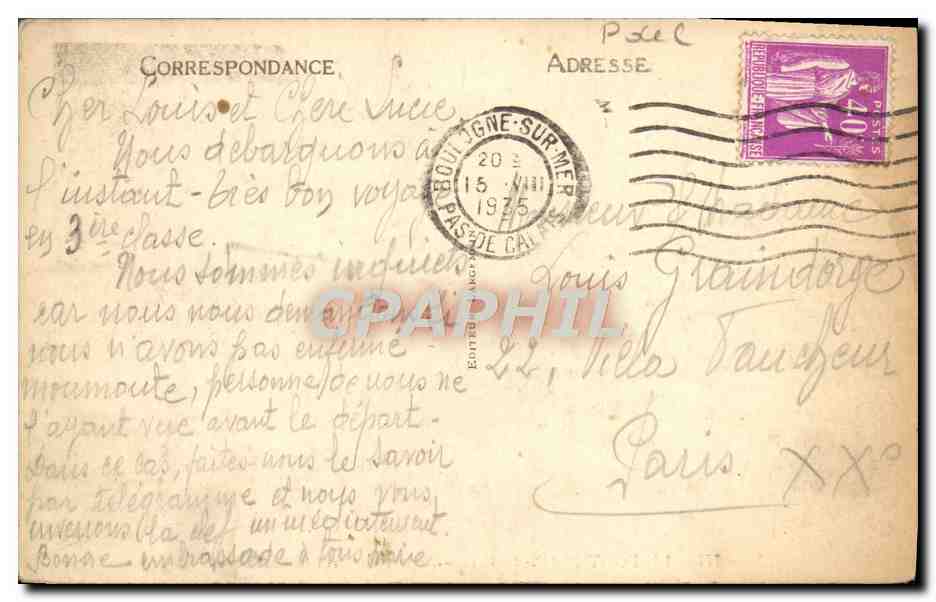 Pxel
CORRESPONDANCE
ADRESSE
Cher Louis et Chère Lucie
Nous débarquons à
l'instant - très bon voyage
en 3ière classe.
Nous sommes inquiets
car nous nous demandons si
nous n'avons pas enfermé
moumoute, personne de nous ne
l'ayant vue avant le départ -
Dans ce cas, faites-nous le savoir
par télégramme et nous vous
enverrons la clef immédiatement.
Bonne embrassade à tous
BOULOGNE-SUR-MER
20
15 VIII
1935
PAS-DE CALAIS
REPUBLIQUE FRANÇAISE
POSTES
40c
EDITEUR
Monsieur & Madame
Louis Graindorge
22, Villa Faucheur
Paris XXe
CPAPHIL